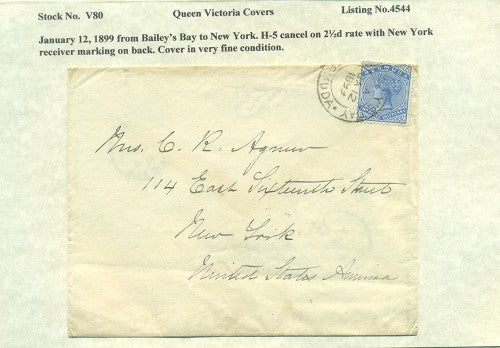 Stock No. V80 Queen Victoria Covers Listing No.4544
January 12, 1899 from Bailey's Bay to New York. H-5 cancel on 2½d rate with New York
receiver marking on back. Cover in very fine condition.
BERMUDA
Mrs. C. R. Agnew
114 East Sixteenth Street
New York
United States America